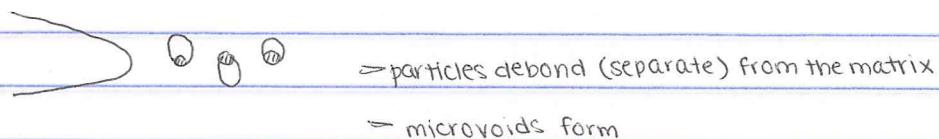 - particles debond (separate) from the matrix
- microvoids form